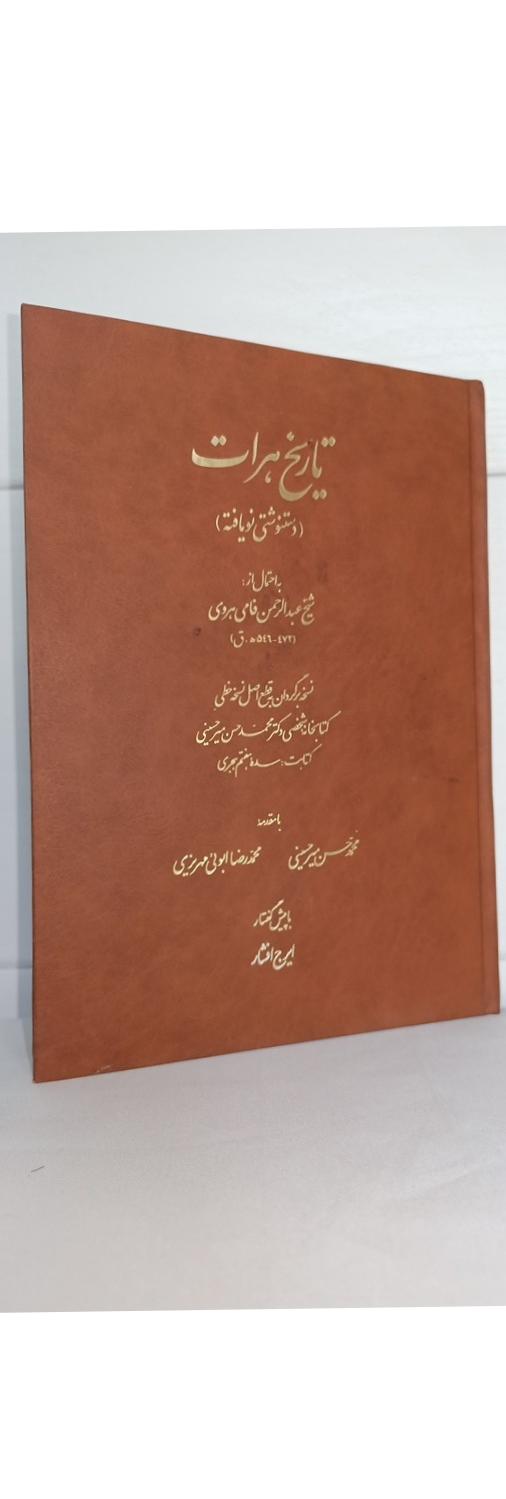 تاریخ هرات
(دستنوشتی نویافته)
به احتمال از:
شیخ عبدالرحمن فامی هروی
(۴۷۲-۵۴۶ ه‍ . ق)
نسخه برگردان به قطع اصل نسخه خطی
کتابخانه شخصی دکتر محمد حسن میرحسینی
کتابت: سده هفتم هجری
با مقدمه
محمد حسن میرحسینی محمدرضا ابویی مهریزی
با پیش گفتار
ایرج افشار